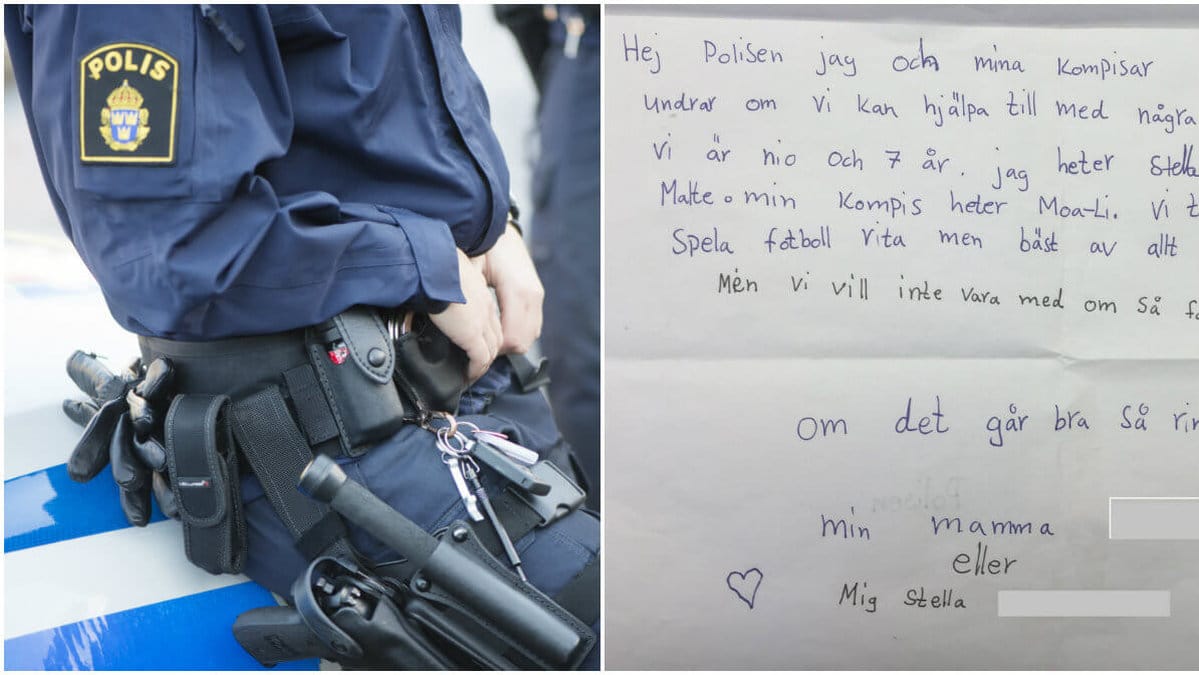 POLIS
Hej Polisen jag och mina kompisar
undrar om vi kan hjälpa till med några
vi är nio och 7 år. jag heter Stella
Matte o min kompis heter Moa-Li. vi
Spela fotboll rita men bäst av allt
Men vi vill inte vara med om så
om det går bra så
min mamma
eller
Mig Stella